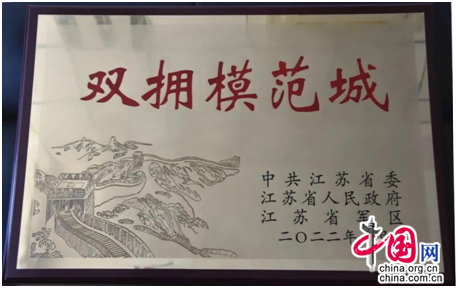 双拥模范城
中共江苏省委
江苏省人民政府
江苏省军区
二〇二二年
中国网
china.org.cn
china.com.cn